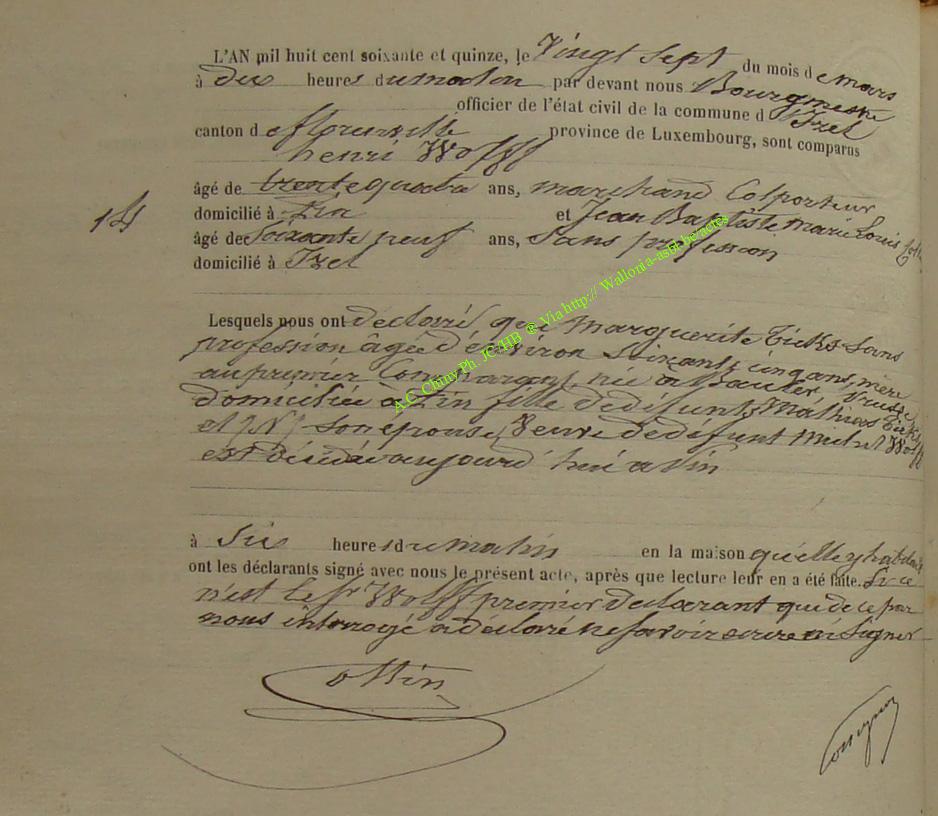 L'AN mil huit cent soixante et quinze, le Vingt Sept du mois de mars
à dix heures du matin par devant nous Bourgmestre
officier de l'état civil de la commune d'Izel
canton de florenville province de Luxembourg, sont comparus
henri Wolff
âgé de trente quatre ans, marchand Colporteur
domicilié à Pin et Jean Baptiste Marie Louis
âgé de Soixante neuf ans, Sans profession
domicilié à Izel
Lesquels nous ont déclaré que Marguerite Ticks Sans
profession âgée d'environ Soixante cinq ans, mère
au premier Comparant, née à Prusse
domiciliée à Pin fille de défunts Mathias Ticks
et (N) son épouse, Veuve de défunt Michel Wolff
est décédée aujourd'hui à Pin
à Six heures du matin en la maison qu'elle y habitait
ont les déclarants signé avec nous le présent acte, après que lecture leur en a été faite. Si ce
n'est le Sr Wolff premier déclarant qui de ce par
nous interrogé a déclaré ne savoir écrire ni Signer
ottin
A.C. Chiny Ph. JC/HB @ Via http:// Wallonia-asbl.be/actes